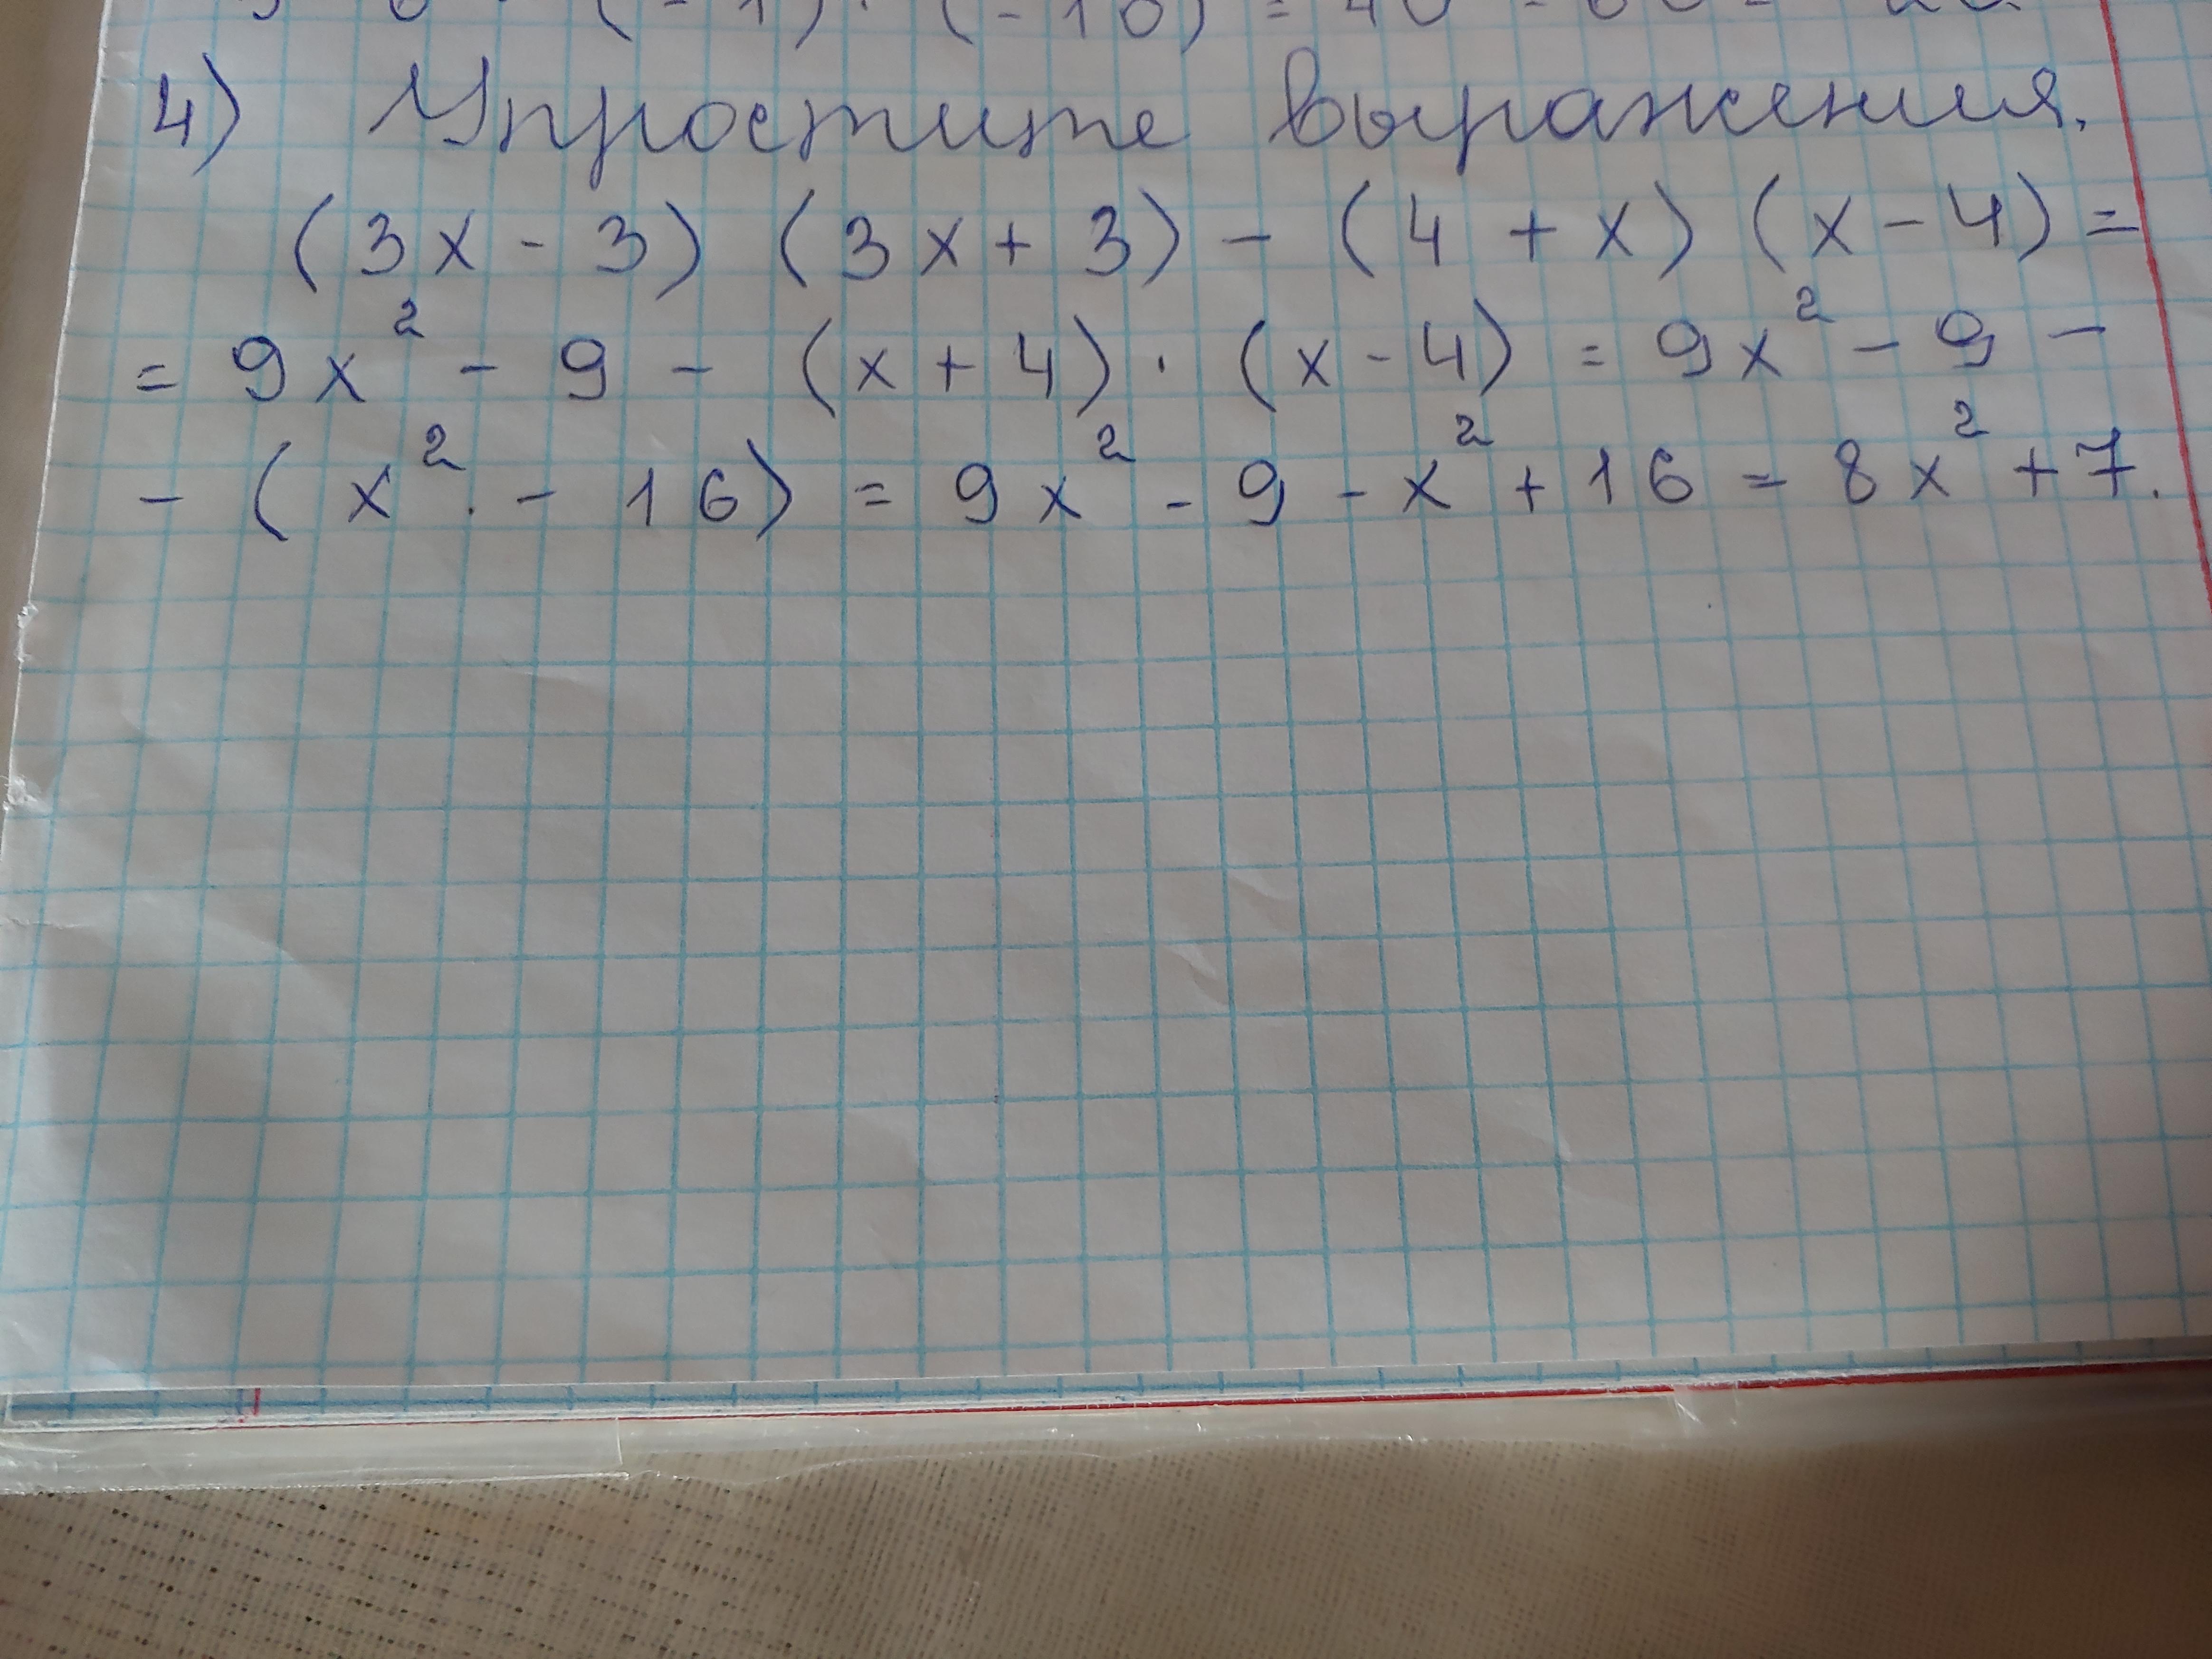 4) Упростите выражения.
(3x - 3) (3x + 3) - (4 + x) (x - 4) =
= 9x² - 9 - (x + 4) · (x - 4) = 9x² - 9 -
- (x² - 16) = 9x² - 9 - x² + 16 = 8x² + 7.